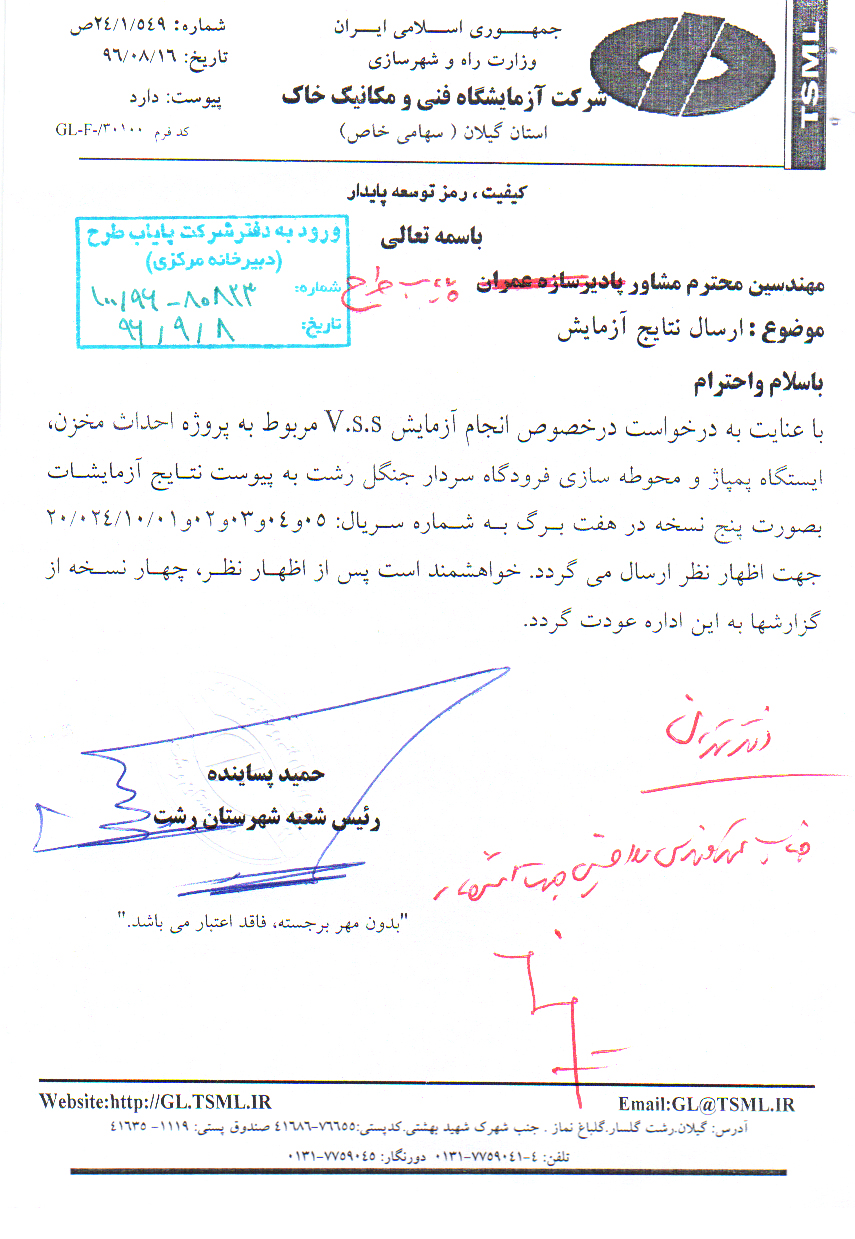 جمهوری اسلامی ایران
وزارت راه و شهرسازی
شرکت آزمایشگاه فنی و مکانیک خاک
استان گیلان ( سهامی خاص)
شماره: ۲۴/۱/۵۴۹ص
تاریخ: ۹۶/۰۸/۱۶
پیوست: دارد
کد فرم GL-F-/۳۰۱۰۰
TSML
کیفیت ، رمز توسعه پایدار
باسمه تعالی
ورود به دفتر شرکت پایاب طرح
(دبیرخانه مرکزی)
شماره: ۱۰۰/۹۶-۸۰۸۲۳
تاریخ: ۹۶/۹/۸
مهندسین محترم مشاور پادیرسازه عمران پایاب طرح
موضوع : ارسال نتایج آزمایش
باسلام واحترام
با عنایت به درخواست درخصوص انجام آزمایش V.s.s مربوط به پروژه احداث مخزن،
ایستگاه پمپاژ و محوطه سازی فرودگاه سردار جنگل رشت به پیوست نتایج آزمایشات
بصورت پنج نسخه در هفت برگ به شماره سریال: ۰۵و۰۴و۰۳و۰۲و۲۰/۰۲۴/۱۰/۰۱
جهت اظهار نظر ارسال می گردد. خواهشمند است پس از اظهار نظر، چهار نسخه از
گزارشها به این اداره عودت گردد.
حمید پساینده
رئیس شعبه شهرستان رشت
"بدون مهر برجسته، فاقد اعتبار می باشد."
دفتر تهران
جناب مهندس
Website:http://GL.TSML.IR
Email:GL@TSML.IR
آدرس: گیلان.رشت گلسار.گلباغ نماز . جنب شهرک شهید بهشتی.کدپستی:۷۶۶۵۵-۴۱۶۸۶ صندوق پستی: ۱۱۱۹- ۴۱۶۳۵
تلفن: ۴-۷۷۵۹۰۴۱-۰۱۳۱ دورنگار: ۷۷۵۹۰۴۵-۰۱۳۱